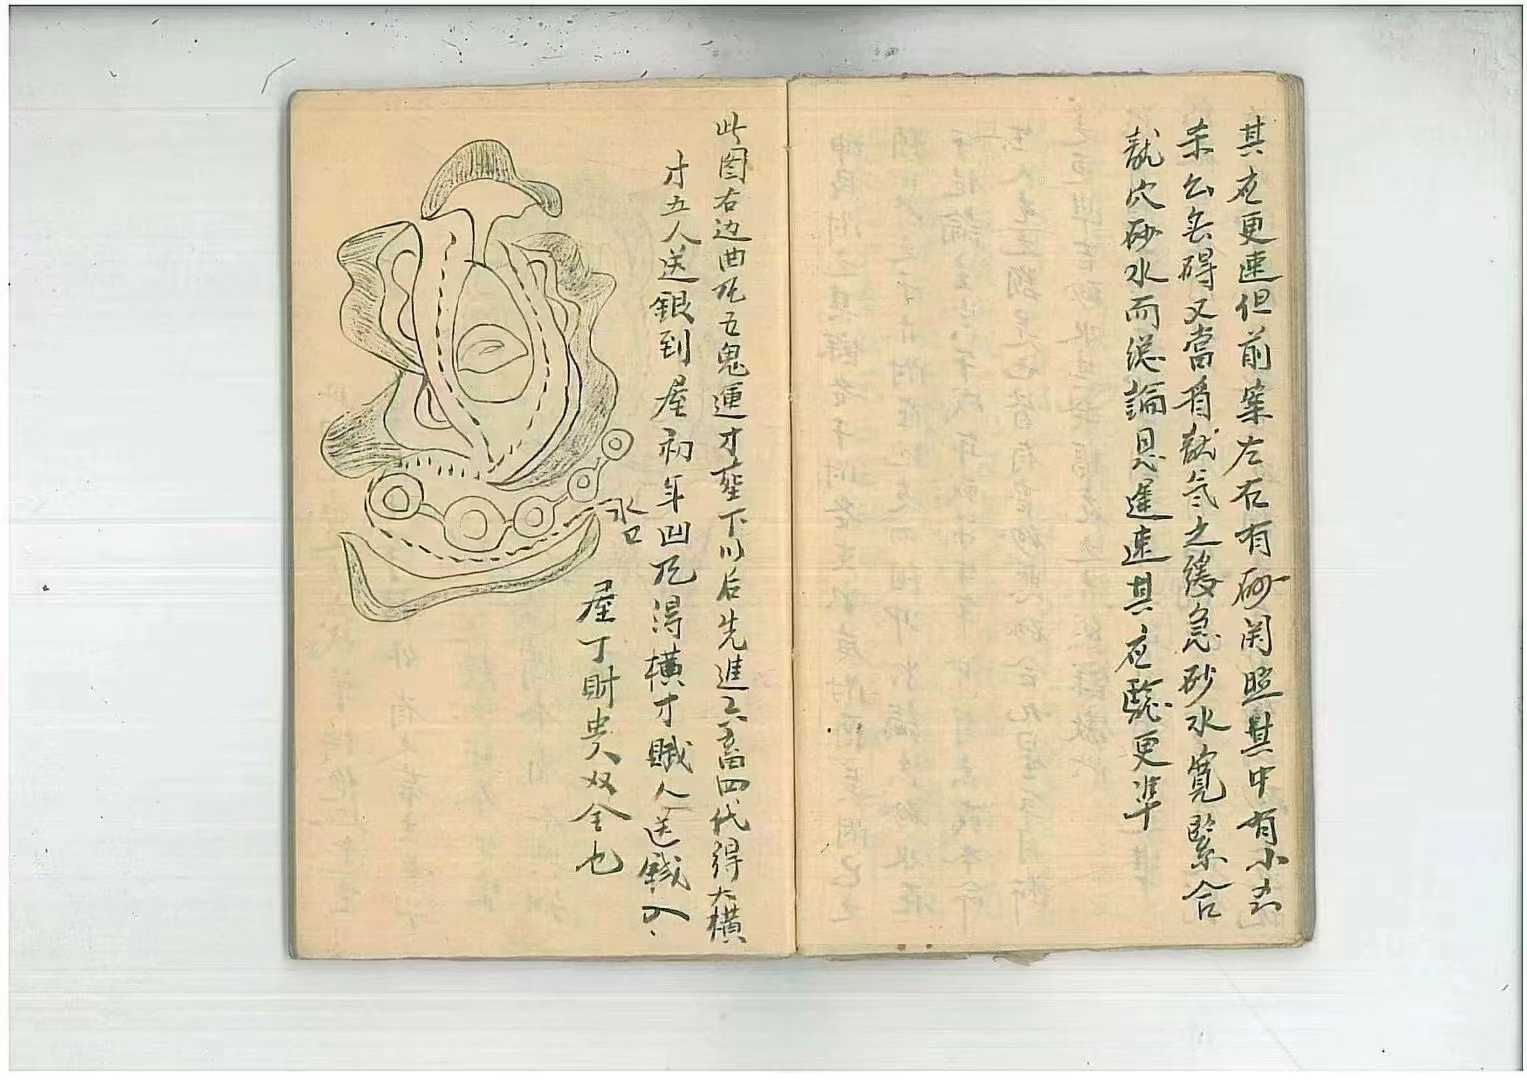 其应更速但前案左右有砂関照其中有小
䄂公無碍又當看龍气之緩急砂水寛緊合
龍穴砂水而総論恩遲速其应驗更準
此图右边曲凡五鬼運才塟下以后先進六畜四代得大横
才五人送銀到屋初年凹凡得横才賊人送錢入
屋丁財貴双全也
水口